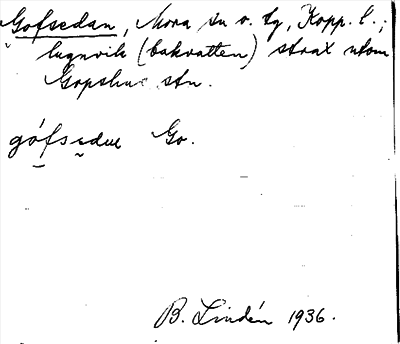 Gofsedan, Mora sn o. tg, Kopp. l.;
lugnvik (bakvatten) strax utom
Gopshus stn.
gófsedan Go.
B. Lindén 1936.